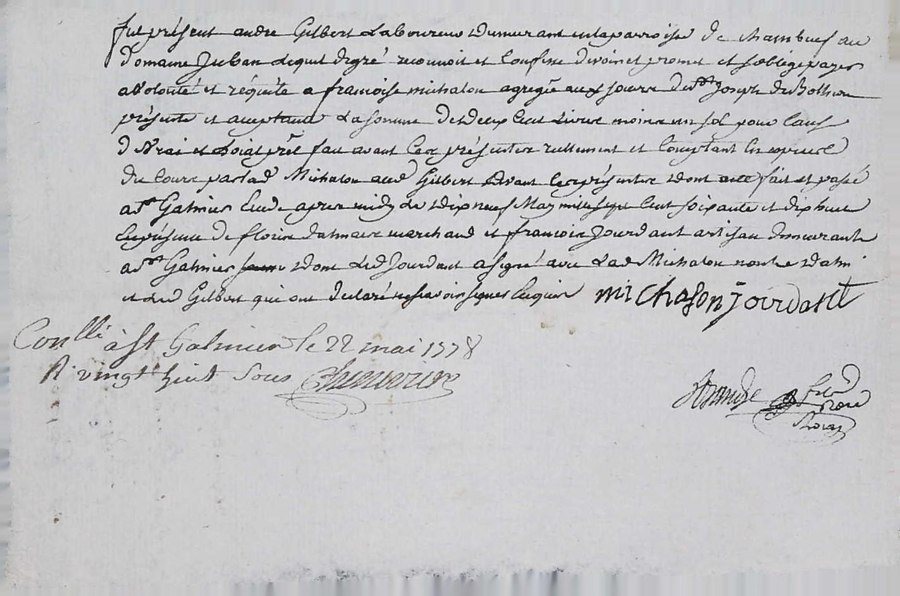 fut présent andre Gilbert Laboureur demeurant en la parroisse de chambeuf au
domaine Juban Lequel de gré reconnoit et Confesse devoir et promet et soblige payer
a volonté et réquête a francoise michalon agregée aux sœurs de st Joseph de
présente et aceptant La somme de deux Cent Livres moins un sol pour Cause
de vrai et Loial prêt fait avant Ces présentes réellement et Comptant En espèces
de Cours par lad Michalon aud Gilbert avant Ces présentes dont acte fait et passé
a st Galmier Etude après midy le dix neuf May mil sept Cent soixante et dix huit
En présence de fleurie dalmais marchand et francois Jourdant artisan demeurants
a st Galmier dont Led Jourdant a signé avec Lad Michalon non Led dalmais
et led Gilbert qui ont déclaré ne savoir signer Enquis michalon jourdant
Conllé à St Galmier le 22 mai 1778
R. vingt huit sous